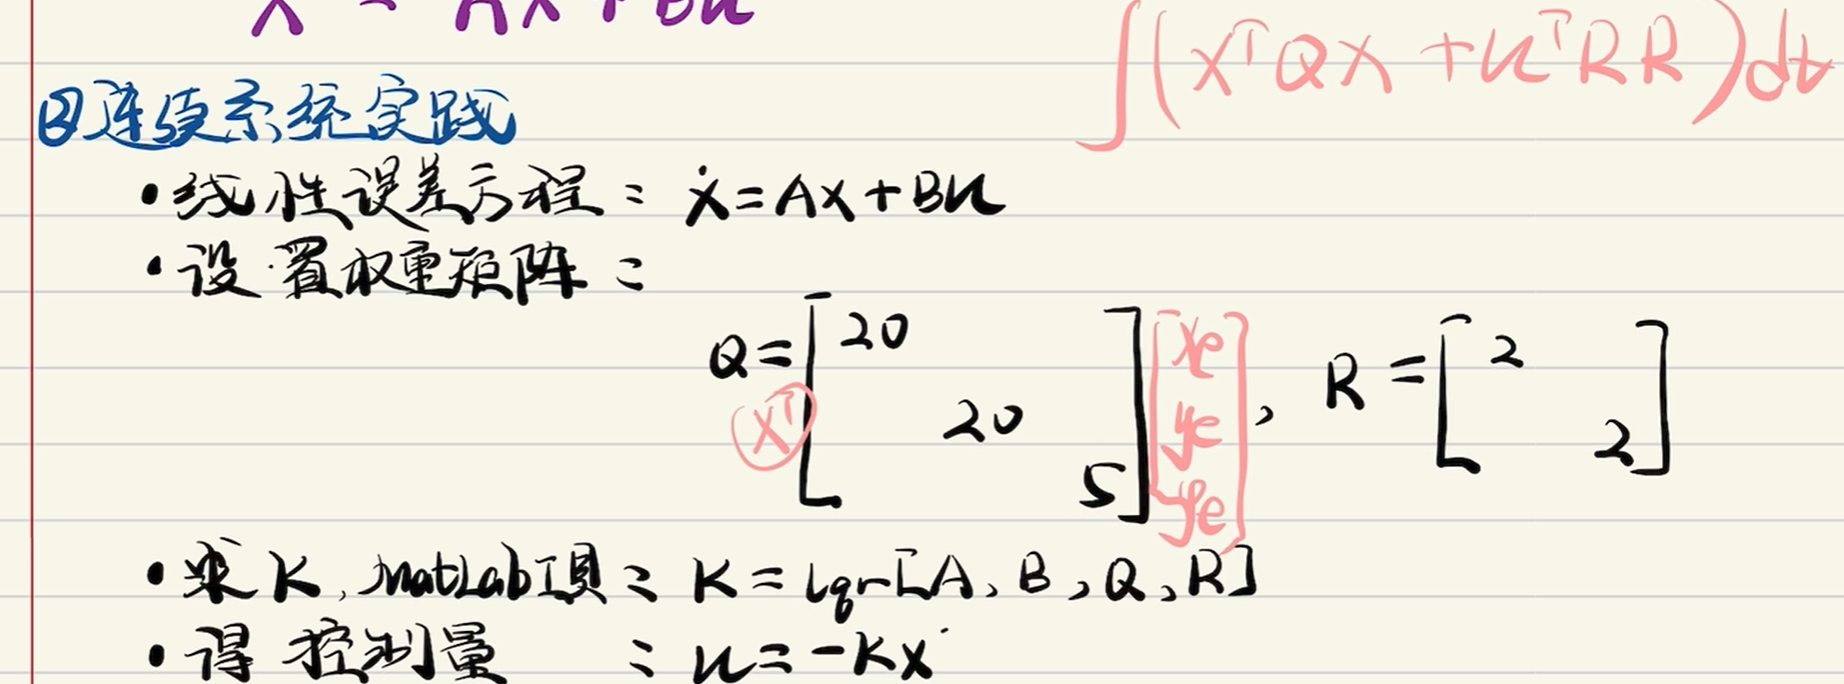 Ẋ = AX + BU
∫(XᵀQX + UᵀRR)dt
②连续系统实践
•线性误差方程: ẋ=AX+BU
•设置权重矩阵:
Q=[20 20 5] [xe ye φe], R=[2 2]
Xᵀ
•求K, MatLab工具: K=lqr[A, B, Q, R]
•得控制量: u=-KX